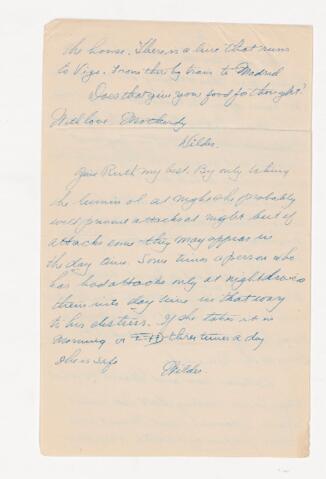 the house. There is a line that runs
to Vigo. From there by train to Madrid
Does that give you food for thought?
With love
Wilder.
Give Ruth my best. By only taking
the luminol at night she probably
will prevent attacks at night but if
attacks come they may appear in
the day time. Some times a person who
has had attacks only at night drives
them into day time in that way
to his distress. If she takes it in
morning or three times a day
she is safe
Wilder.